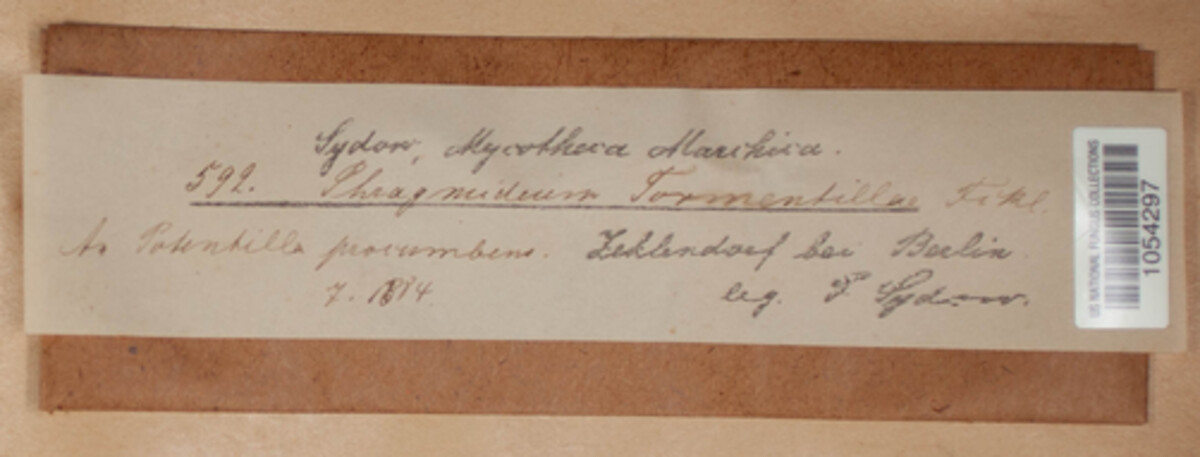 Sydow, Mycotheca Marchica.
592. Phragmidium Tormentillae Fckl.
An Potentilla procumbens. Zehlendorf bei Berlin.
7. 1884 leg. P. Sydow.
US NATIONAL FUNGUS COLLECTIONS
1054297